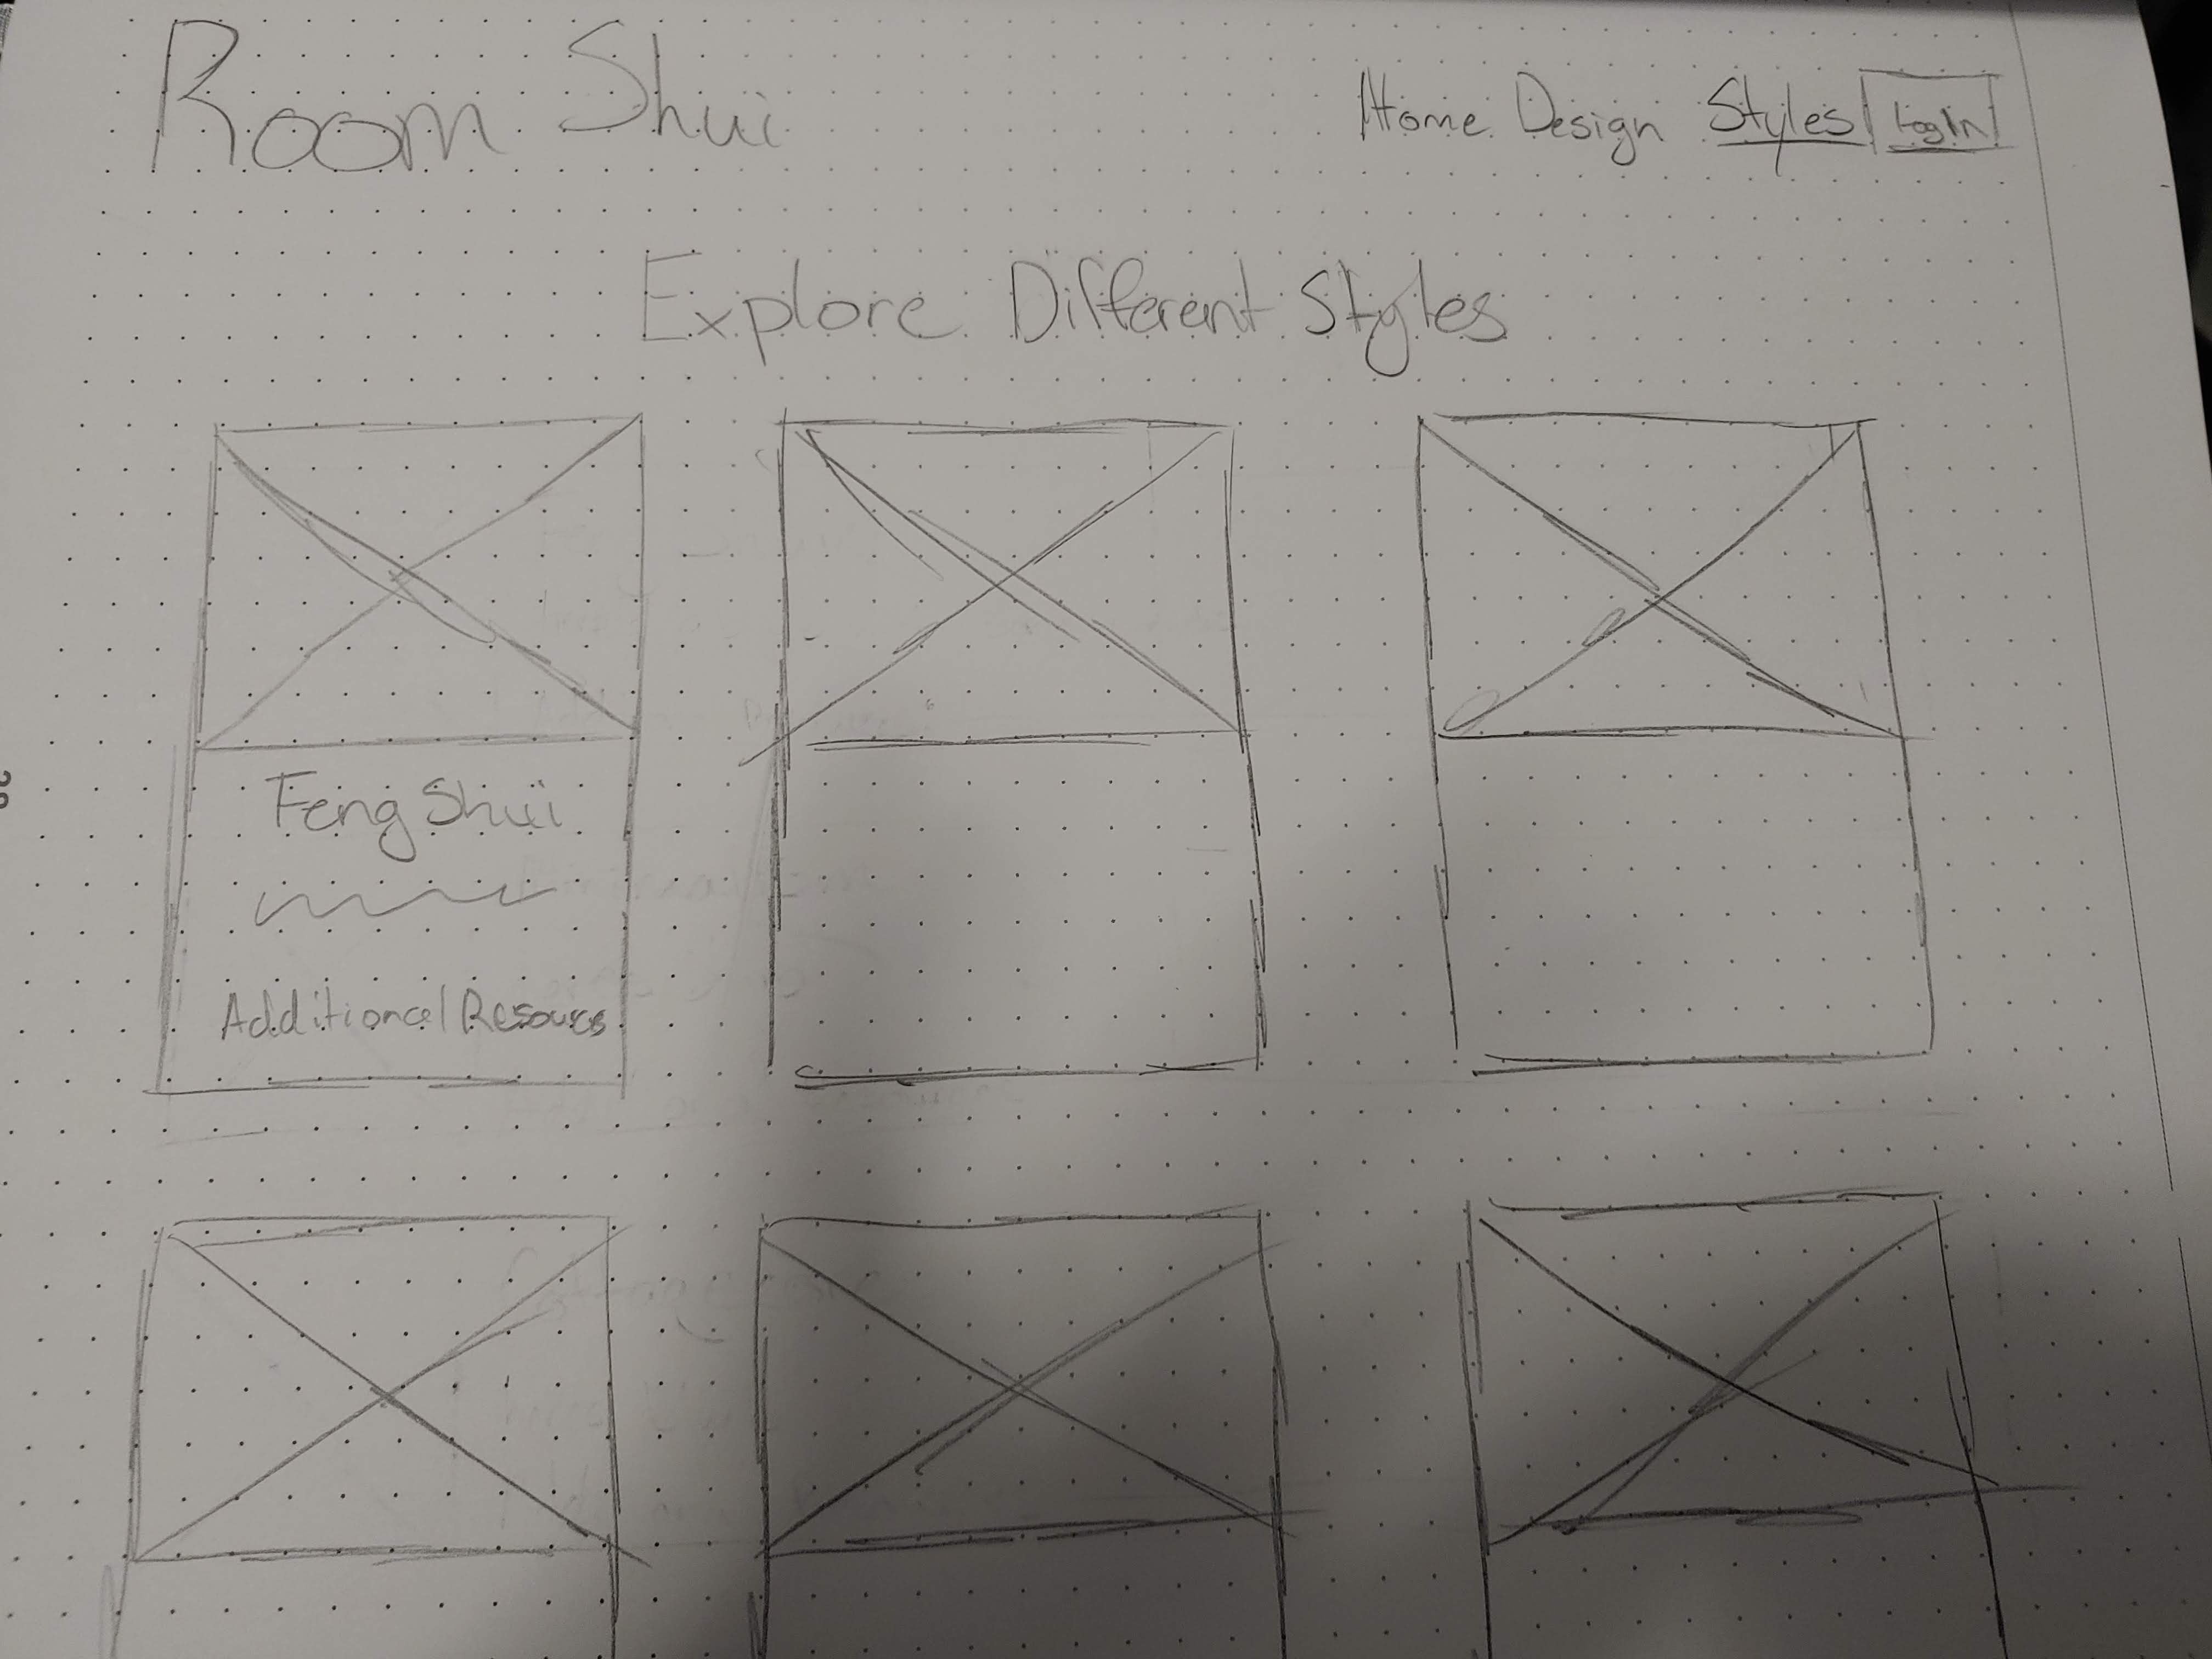 Room Shui
Home Design Styles Log In
Explore Different Styles
Feng Shui
Additional Resources